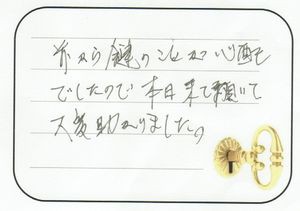 前から鍵のことが心配
でしたので本日来て頂いて
大変助かりました。